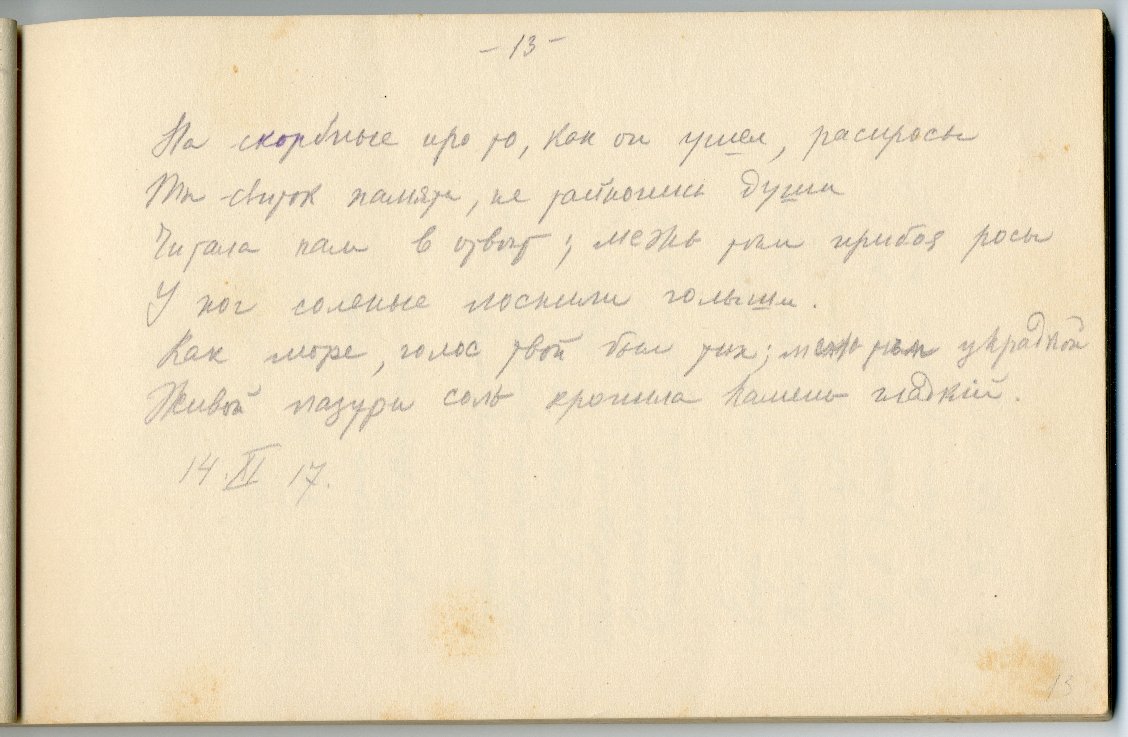 – 13 –
На скорбные про то, как он ушел, распросы
Ты свиток памяти, не тайнопись души
Читала нам в ответ; межь тем прибоя росы
У ног соленые лоснили голыши.
Как море, голос твой был тих; межь тем украдкой
Живой лазури соль кропила камень гладкій.
14. XI 17.
13